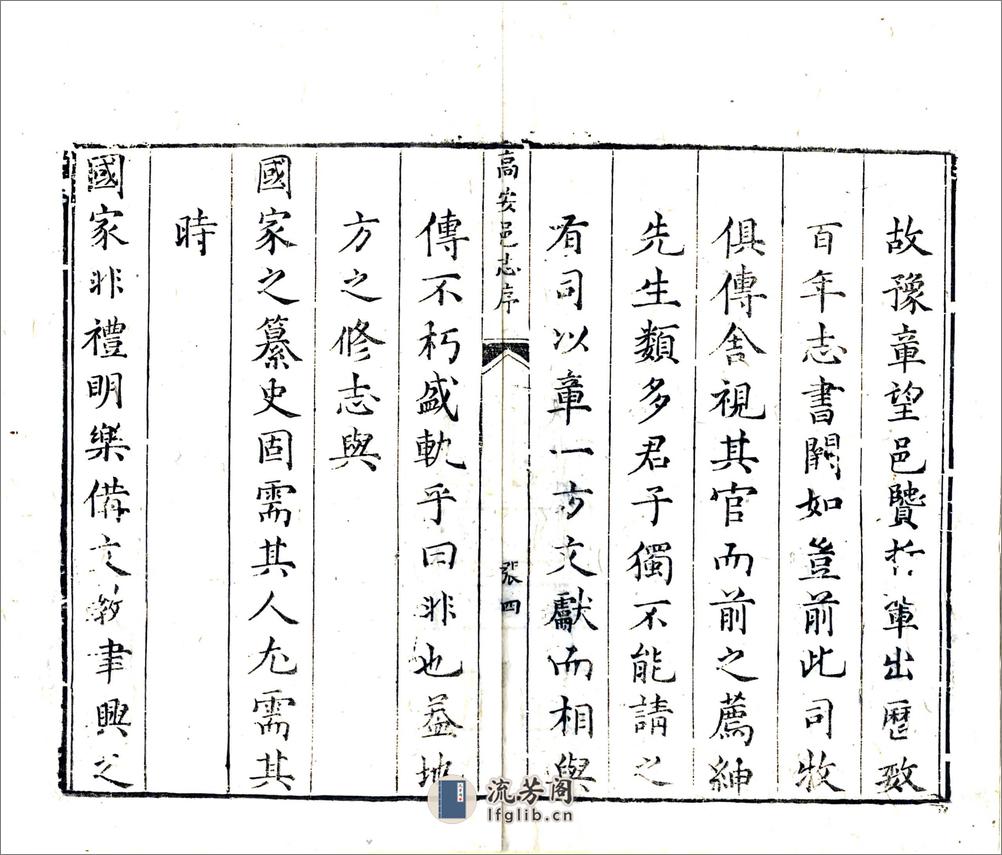 故豫章望邑贒哲輩出歷數
百年志書闕如豈前此司牧
俱傳舍視其官而前之薦紳
先生類多君子獨不能請之
有司以章一方文獻而相與
高安邑志序
張四
傳不朽盛軌乎曰非也葢地
方之修志與
國家之纂史固需其人尤需其
時
國家非禮明樂備文教聿興之
流芳阁
lfglib.cn